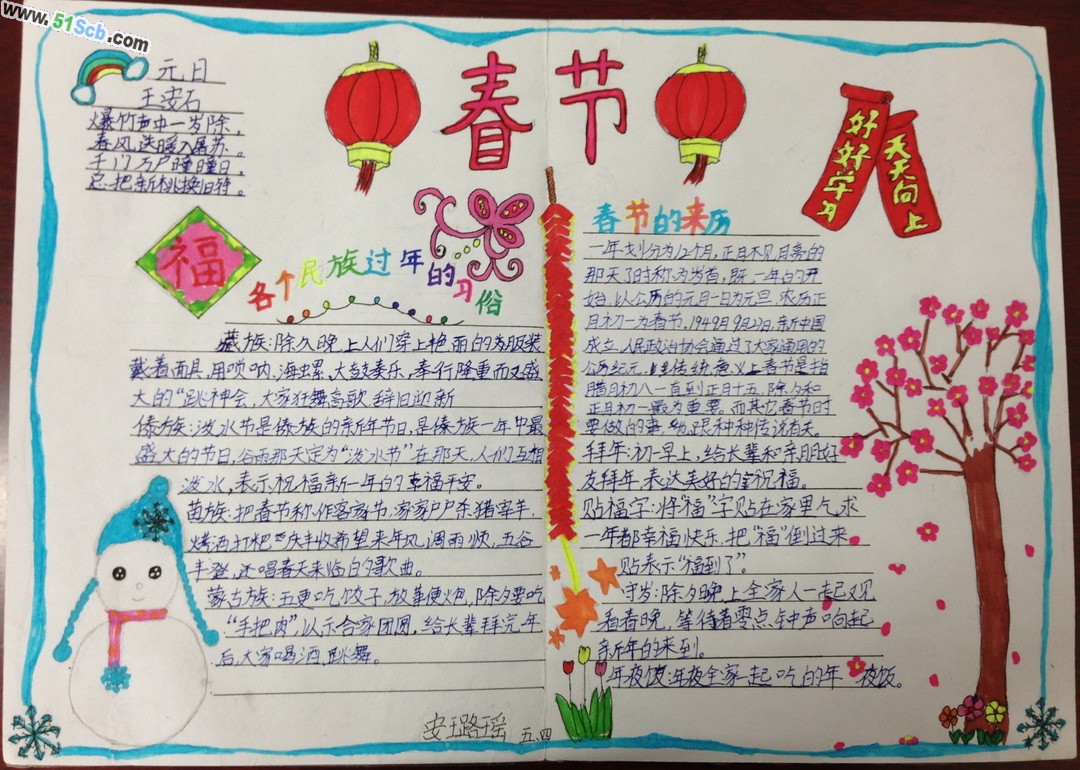 www.51Scb.com
春节
元日
王安石
爆竹声中一岁除，
春风送暖入屠苏。
千门万户曈曈日，
总把新桃换旧符。
福
各个民族过年的习俗
藏族：除夕晚上人们穿上艳丽的为服装
戴着面具，用唢呐、海螺、大鼓奏乐，奉行隆重而又盛
大的“跳神会，大家狂舞高歌 辞旧迎新
傣族：泼水节是傣族的新年节日，是傣族一年中最
盛大的节日，谷雨那天定为“泼水节”在那天，人们互相
泼水，表示祝福新一年的幸福平安。
苗族：把春节称作客家节，家家户户杀猪宰羊，
烤酒打粑 庆丰收希望来年风调雨顺，五谷
丰登，还唱春天来临白的歌曲。
蒙古族：五更吃饺子，放革便火包，除夕要吃
“手把肉”以示合家团圆，给长辈拜完年
后大家喝酒、跳舞。
安珏路瑶 五.四
好好学习
天天向上
春节的来历
一年划分为12个月，正月不见月亮的
那天了时称为岁首，既一年的开
始，以公历的元月一日为元旦，农历正
月初一为春节，1949月9月27日，新中国
成立，人民政治协会通过了大家通用的
公历纪元，传统意义上春节是指
腊月初八一直到正月十五，除夕和
正月初一最为重要。而其它春节时
要做的事 跟种种传说有关。
拜年：初一早上，给长辈和亲朋好
友拜年，表达美好的祝福。
贴福字：将“福”字贴在家里乞求
一年都幸福快乐，把“福”倒过来
贴表示“福到了”。
守岁：除夕晚上全家人一起观
看春晚，等待着零点钟声响起
新年的来到。
年夜饭：年夜全家一起吃的年夜饭。